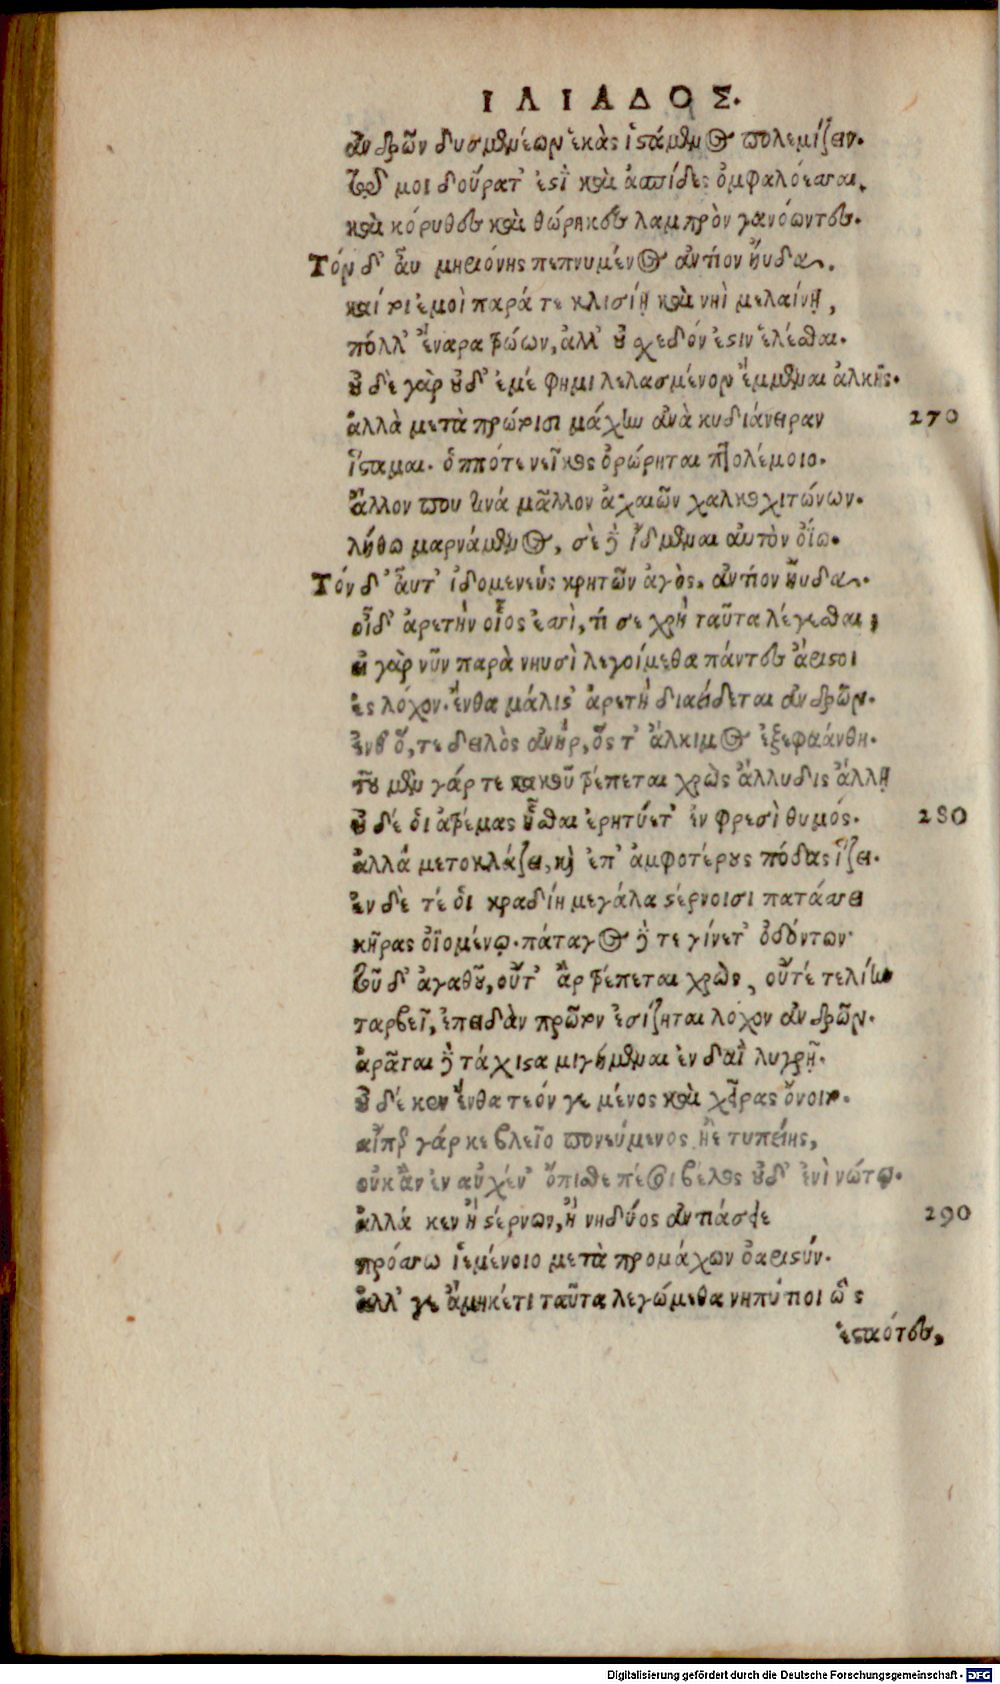 ΙΛΙΑΔΟΣ.
ἀνδρῶν δυσμενέων ἑκὰς ἱστάμενος πολεμίζειν.
τῷ μοι δούρατ' ἐστὶ καὶ ἀσπίδες ὀμφαλόεσσαι,
καὶ κόρυθες καὶ θώρηκες λαμπρὸν γανόωντες.
Τόν δ' αὖ μηριόνης πεπνυμένος ἀντίον ηὔδα.
καί τι ἐμοὶ παρά τε κλισίῃ καὶ νηῒ μελαίνῃ,
πόλλ' ἔναρα τρώων, ἀλλ' οὐ σχεδόν ἐστιν ἑλέσθαι.
οὐδὲ γὰρ οὐδ' ἐμέ φημι λελασμένον ἔμμεναι ἀλκῆς.
ἀλλὰ μετὰ πρώτοισι μάχην ἀνὰ κυδιάνειραν 270
ἵσταμαι. ὁππότε νεῖκος ὀρώρηται πτολέμοιο.
ἄλλον που τινά μᾶλλον ἀχαιῶν χαλκοχιτώνων.
λήθω μαρνάμενος, σὲ δὲ ἴδμεναι αὐτὸν ὀΐω.
Τόν δ' αὖτ' ἰδομενεὺς κρητῶν ἀγὸς. ἀντίον ηὔδα.
οἶδ' ἀρετὴν οἷος ἐσσὶ, τί σε χρὴ ταῦτα λέγεσθαι;
εἰ γὰρ νῦν παρὰ νηυσὶ λεγοίμεθα πάντες ἄριστοι
ἐς λόχον. ἔνθα μάλιστ' ἀρετὴ διαείδεται ἀνδρῶν.
ἔνθ' ὅ, τε δειλὸς ἀνὴρ, ὅς τ' ἄλκιμος ἐξεφαάνθη.
τοῦ μὲν γάρ τε κακοῦ τρέπεται χρὼς ἄλλυδις ἄλλῃ
οὐδέ οἱ ἀτρέμας ἧσθαι ἐρητύετ' ἐν φρεσὶ θυμός. 280
ἀλλὰ μετοκλάζει, καὶ ἐπ' ἀμφοτέρους πόδας ἵζει.
ἐν δὲ τέ οἱ κραδίη μεγάλα στέρνοισι πατάσσει
κῆρας ὀϊομένῳ. πάταγος δέ τε γίνετ' ὀδόντων·
τοῦ δ' ἀγαθοῦ, οὔτ' ἂρ τρέπεται χρὼς, οὔτέ τε λίην
ταρβεῖ, ἐπειδὰν πρῶτον ἐσίζηται λόχον ἀνδρῶν.
ἀρᾶται δὲ τάχιστα μιγήμεναι ἐν δαῒ λυγρῇ.
οὐδέ κεν ἔνθα τεόν γε μένος καὶ χεῖρας ὄνοιτο.
εἴπερ γάρ κε βλεῖο πονεύμενος ἠὲ τυπείης,
οὐκ ἂν ἐν αὐχέν' ὄπισθε πέσοι βέλος οὐδ' ἐνὶ νώτῳ.
ἀλλά κεν ἢ στέρνων, ἢ νηδύος ἀντιάσειε 290
πρόσσω ἱεμένοιο μετὰ προμάχων ὀαριστύν.
ἀλλ' γε ἄμηκέτι ταῦτα λεγώμεθα νηπύτιοι ὣς
ἑσταότες,
Digitalisierung gefördert durch die Deutsche Forschungsgemeinschaft - DFG